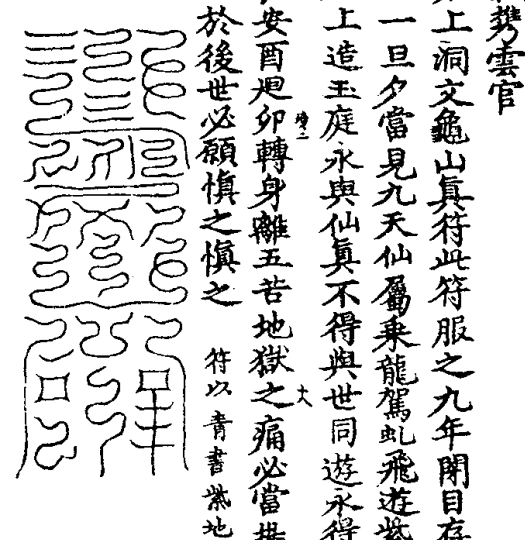 携雲官
上洞文龜山真符此符服之九年閉目存
一旦夕當見九天仙屬乘龍駕虬飛遊紫
上造玉庭永與仙真不得與世同遊永得
安酉廻卯轉身離五苦地獄之痛必當
於後世必願慎之慎之
符以青書紫地